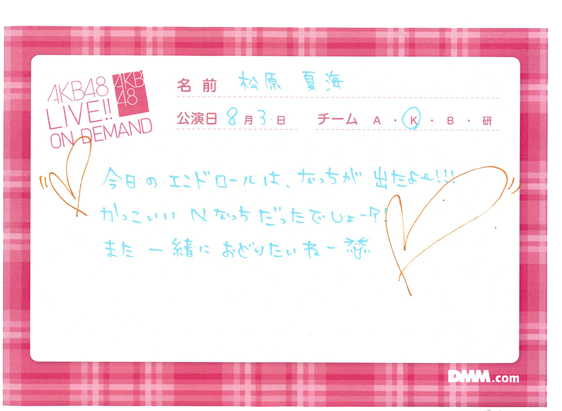 AKB48
LIVE!!
ON DEMAND
AKB
48
名前 松原 夏海
公演日 8月3日 チーム A・K・B・研
今日のエンドロールは、なっちが出たよー!!!
かっこいい Nなっちだったでしょー?!
また一緒におどりたいねー
DMM.com